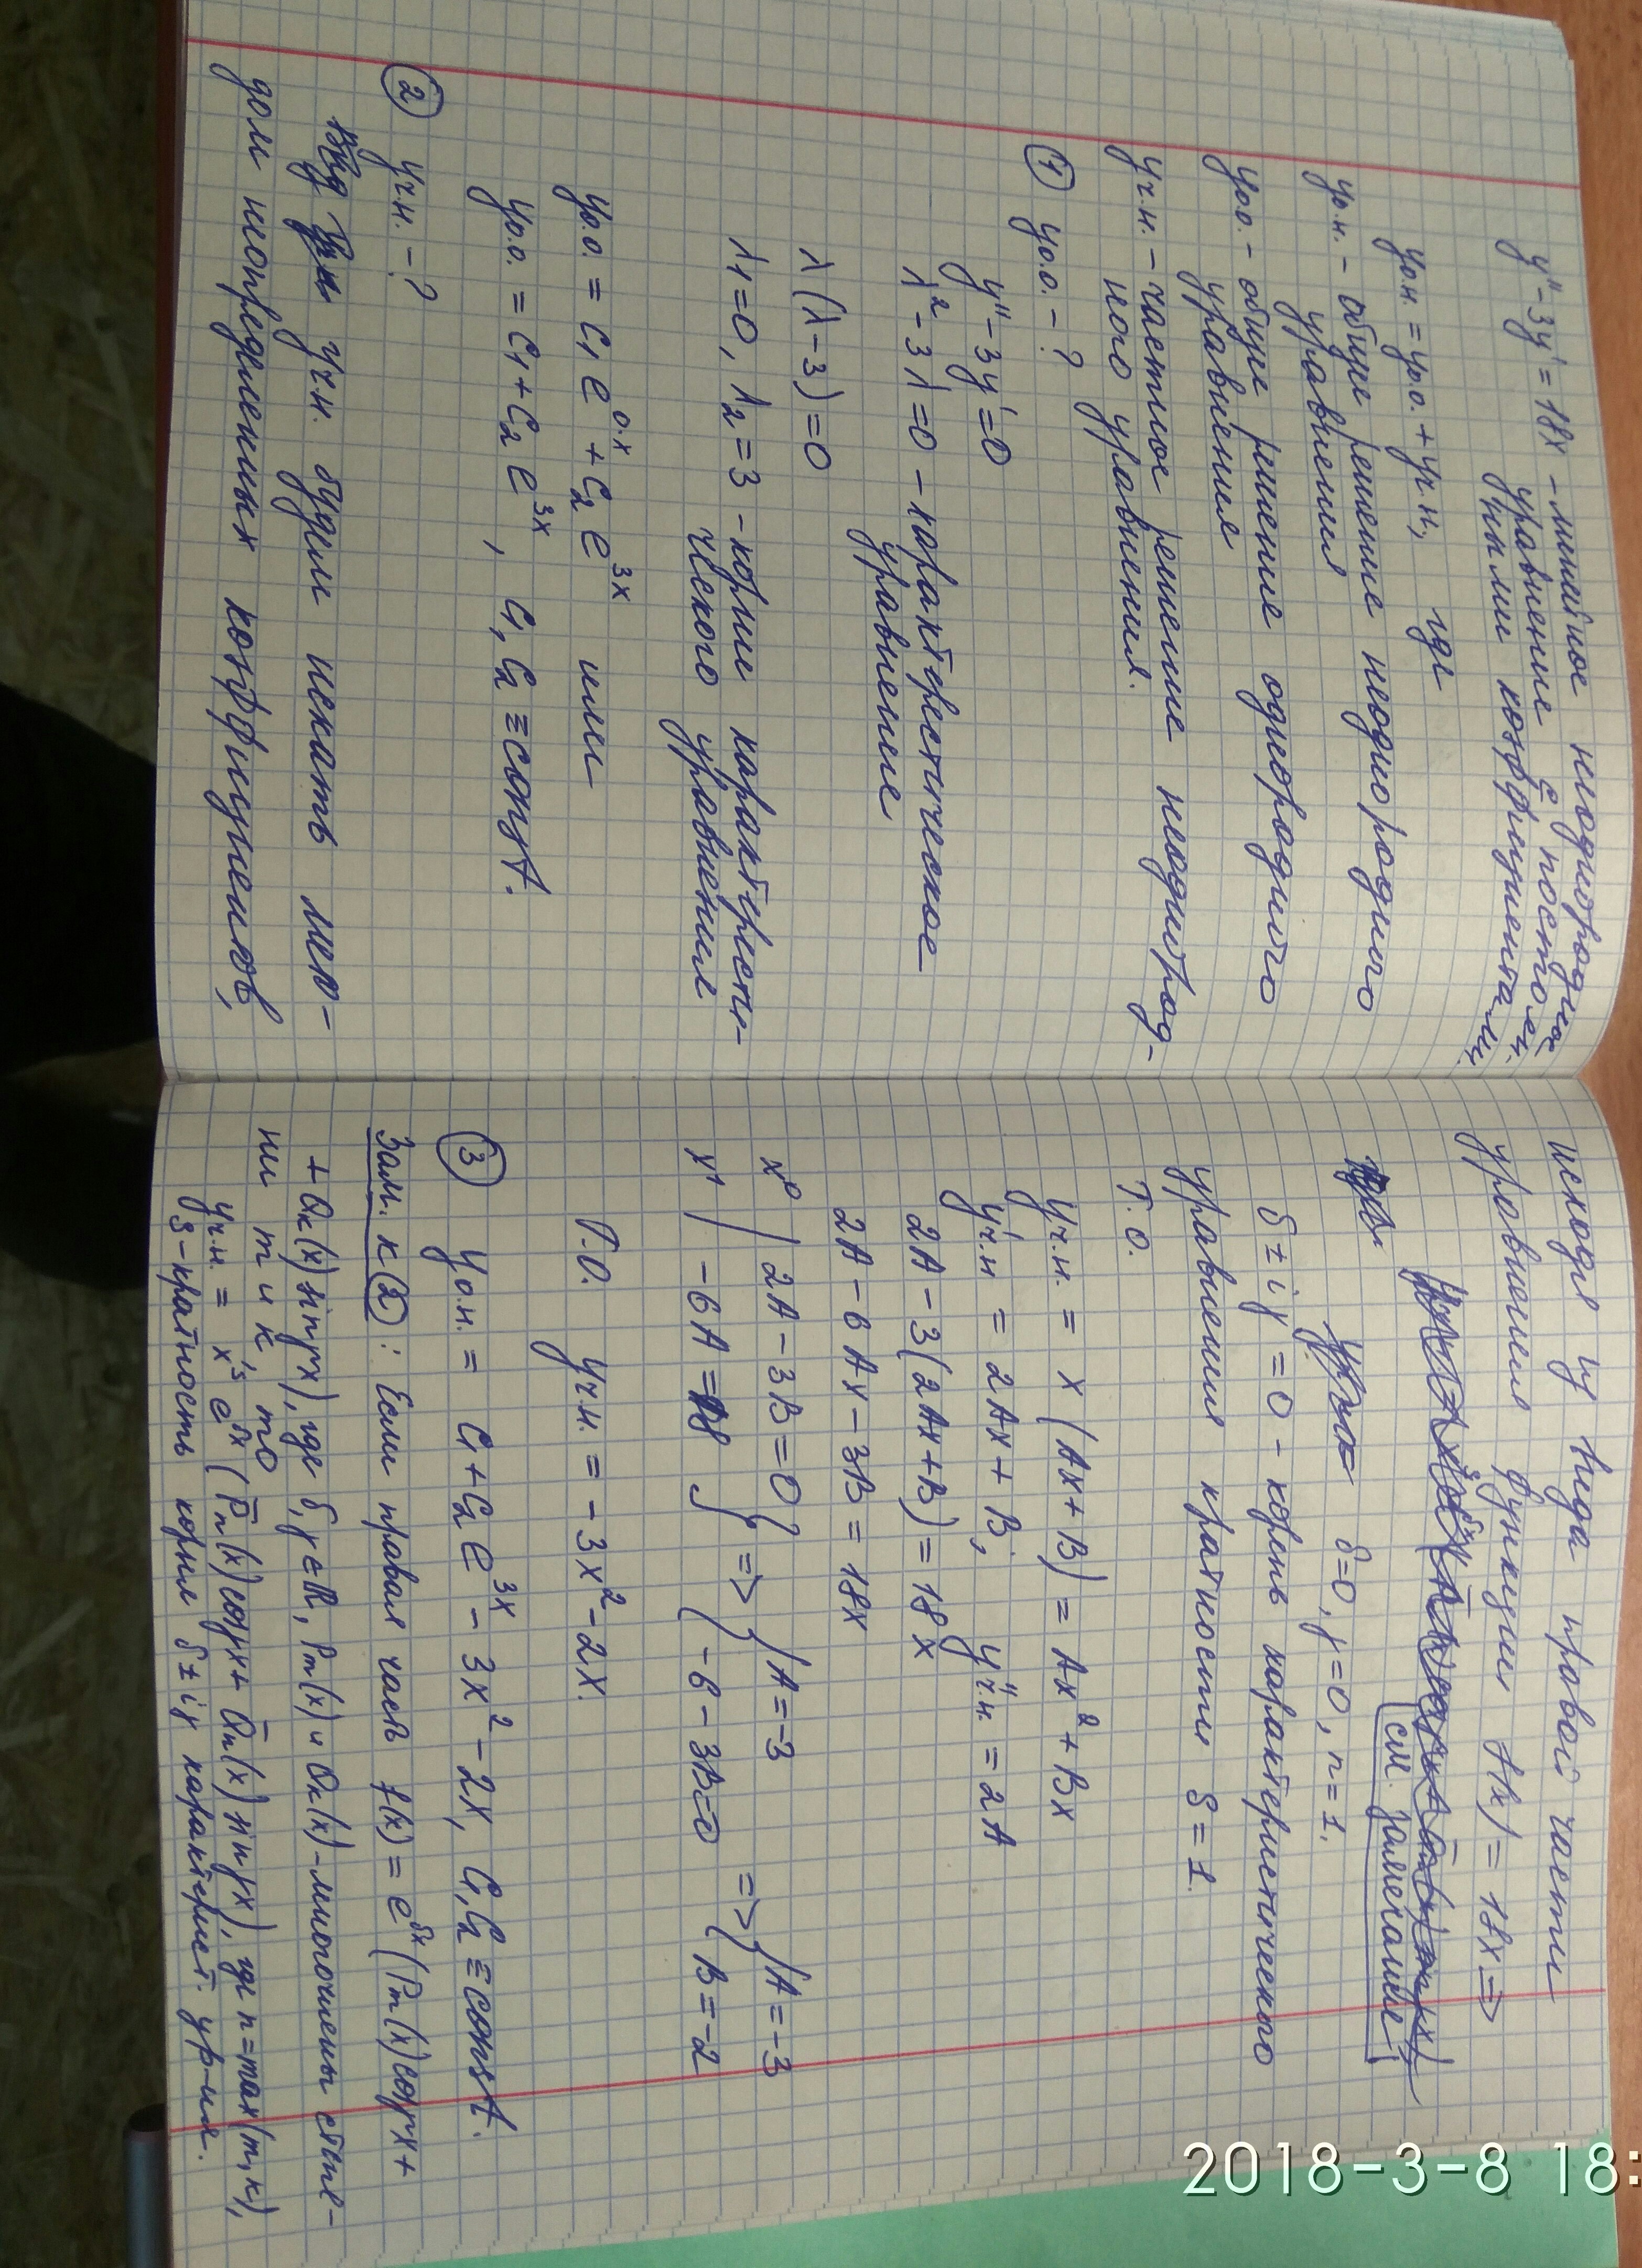 y'' - 3y' = 18x - линейное неоднородное
уравнение с постоян-
ными коэффициентами.
yо.н. = yо.о. + yч.н., где
yо.н. - общее решение неоднородного
уравнения
yо.о. - общее решение однородного
уравнение
yч.н. - частное решение неоднород-
ного уравнения.
① yо.о. - ?
y'' - 3y' = 0
λ² - 3λ = 0 - характеристическое
уравнение
λ(λ - 3) = 0
λ₁ = 0, λ₂ = 3 - корни характеристи-
ческого уравнения
yо.о. = C₁ e^{0·x} + C₂ e^{3x} или
yо.о. = C₁ + C₂ e^{3x}, C₁, C₂ ≡ const.
② yч.н. - ?
yч.н. будем искать мето-
дом неопределенных коэффициентов,
исходя из вида правой части
уравнения функции f(x) = 18x ⇒
см. замечание
δ = 0, γ = 0, n = 1.
δ ± iγ = 0 - корень характеристического
уравнения кратности S = 1.
Т.о.
yч.н. = x(Ax + B) = Ax² + Bx
y'ч.н = 2Ax + B; y''ч.н. = 2A
2A - 3(2Ax + B) = 18x
2A - 6Ax - 3B = 18x
x⁰ | 2A - 3B = 0 } ⇒ { A = -3 ⇒ { A = -3
x¹ | -6A = 18 } { -6 - 3B = 0 { B = -2
Т.о. yч.н. = -3x² - 2x.
③ yо.н. = C₁ + C₂ e^{3x} - 3x² - 2x, C₁, C₂ ≡ const.
Зам. к ②: Если правая часть f(x) = e^{δx}(Pm(x) cosγx +
+ Qk(x) sinγx), где δ, γ ∈ R, Pm(x) и Qk(x) - многочлены степе-
ни m и k, то
yч.н. = x^s e^{δx}(P̄n(x) cosγx + Q̄n(x) sinγx), где n = max(m, k),
s - кратность корня δ ± iγ характерист. ур-ия.
2018-3-8 18: